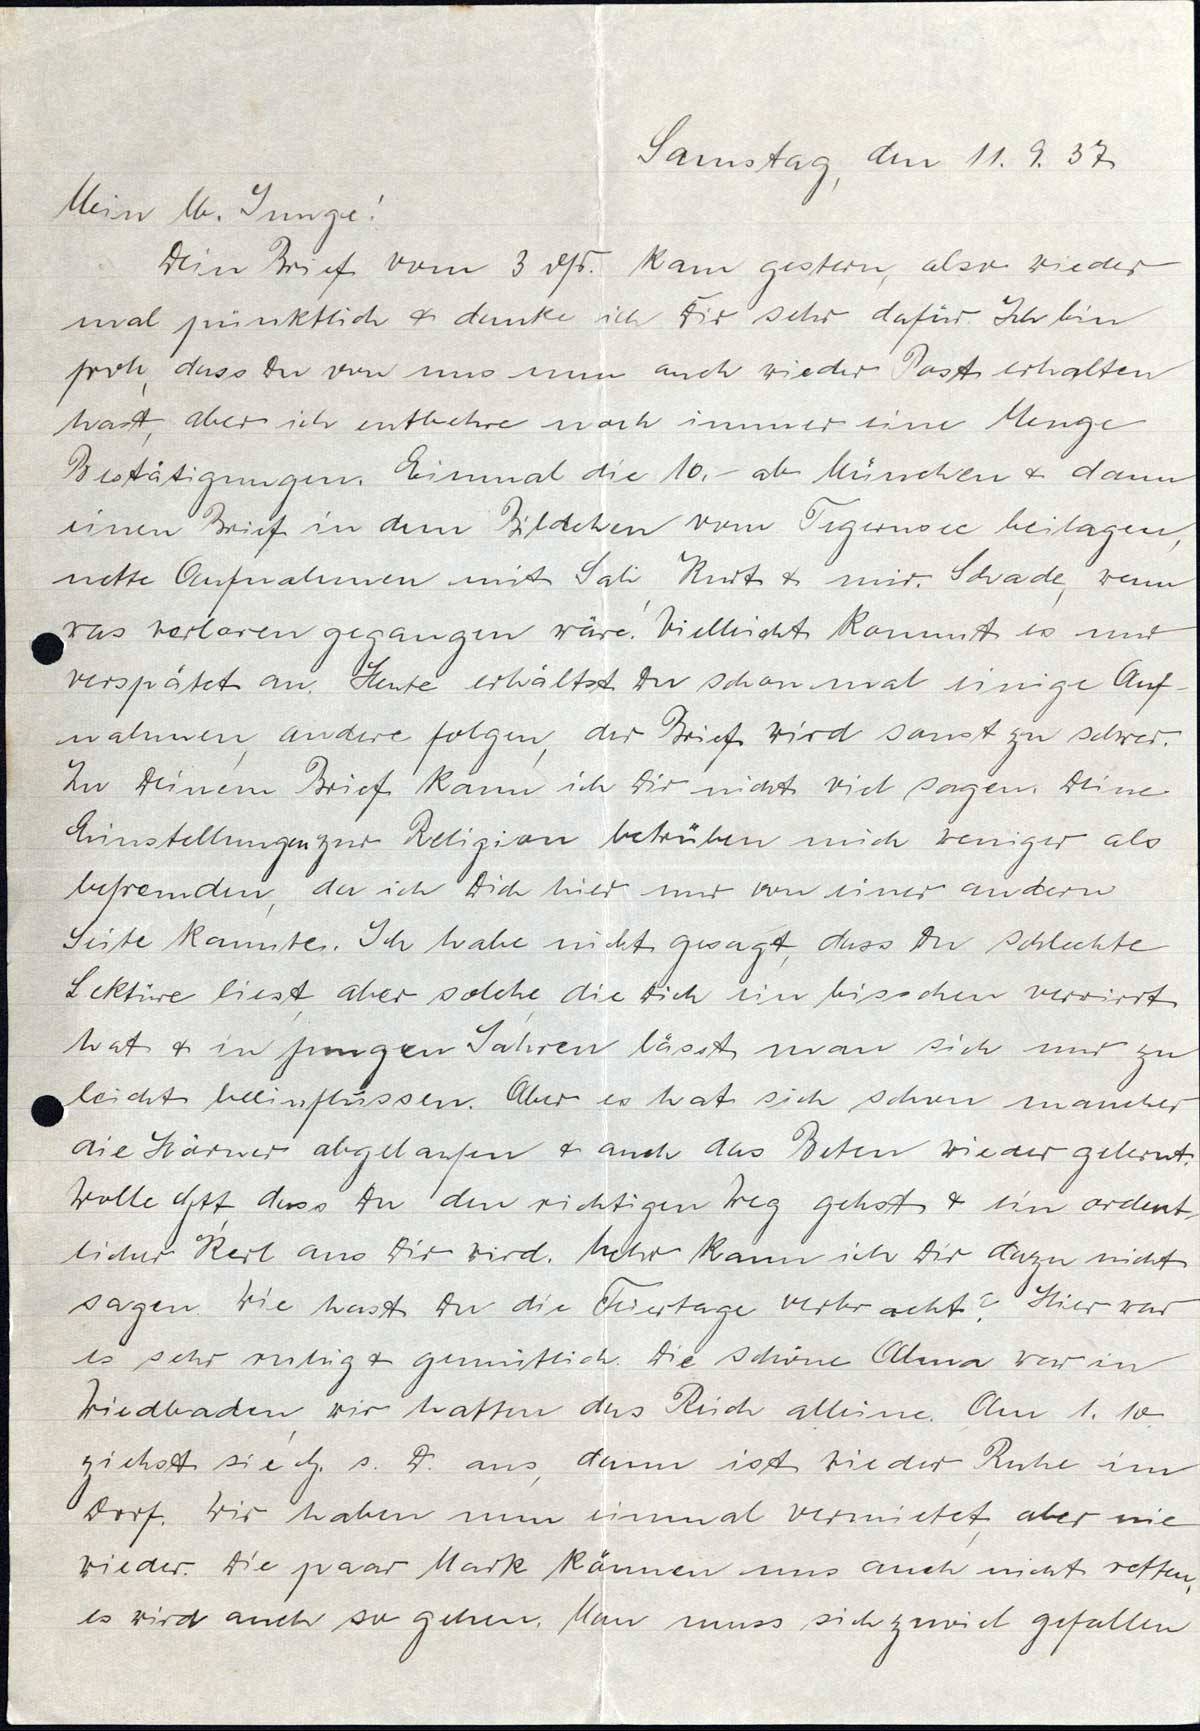 Samstag, den 11. 9. 37
Mein lb. Junge!
Dein Brief vom 3 dfs. kam gestern, also wieder
mal pünktlich & danke ich Dir sehr dafür. Ich bin
froh, dass Du von uns nun auch wieder Post erhalten
hast, aber ich entbehre noch immer eine Menge
Bestätigungen. Einmal die 10.- ab München & dann
einen Brief in dem Bildchen vom Tegernsee beilagen,
nette Aufnahmen mit Sali, Kurt & mir. Schade, wenn
was verloren gegangen wäre! Vielleicht kommt es nur
verspätet an. Heute erhältst Du schon mal einige Auf-
nahmen, andere folgen, der Brief wird sonst zu schwer.
Zu Deinem Brief kann ich Dir nicht viel sagen. Deine
Einstellungen zur Religion betrüben mich weniger als
befremden, da ich Dich hier nur von einer andern
Seite kannte. Ich habe nicht gesagt, dass Du schlechte
Lektüre liest, aber solche, die Dich ein bisschen verwirrt
hat & in jungen Jahren lässt man sich nur zu
leicht beeinflussen. Aber es hat sich schon mancher
die Hörner abgelaufen & auch das Beten wieder gelernt.
Wolle Gtt, dass Du den richtigen Weg gehst & ein ordent-
licher Kerl aus Dir wird. Mehr kann ich Dir dazu nicht
sagen. Wie hast Du die Feiertage verbracht? Hier war
es sehr ruhig & gemütlich. Die schöne Alma war in
Wiesbaden, wir hatten das Reich alleine. Am 1. 10
ziehst sie G. s. D. aus, dann ist wieder Ruhe im
Dorf. Wir haben nun einmal vermietet, aber nie
wieder. Die paar Mark können uns auch nicht retten,
es wird auch so gehen. Man muss sich zuviel gefallen